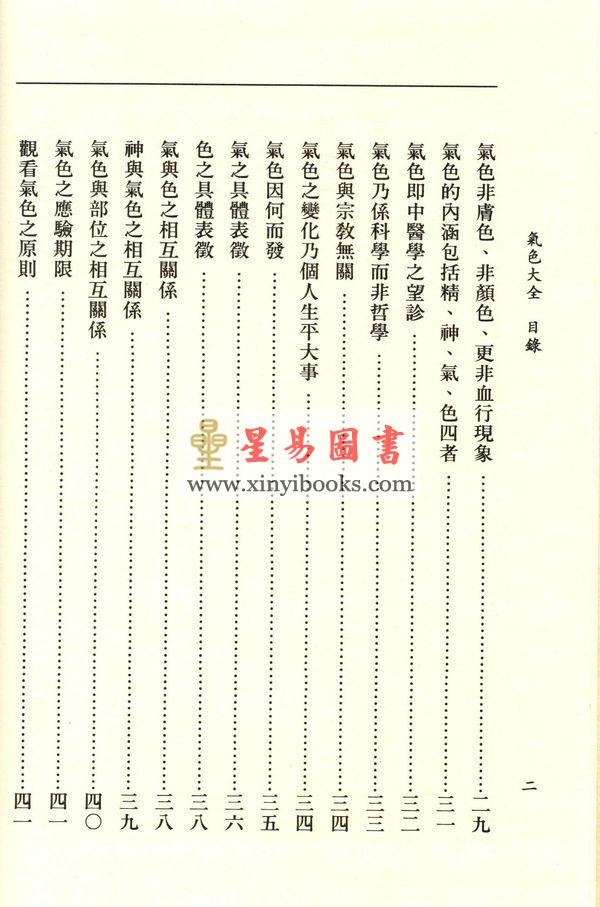 氣色大全　目錄
二
氣色非膚色、非顏色、更非血行現象……二九
氣色的內涵包括精、神、氣、色四者……三一
氣色即中醫學之望診……三二
氣色乃係科學而非哲學……三三
氣色與宗教無關……三四
氣色之變化乃個人生平大事……三四
氣色因何而發……三五
氣之具體表徵……三六
色之具體表徵……三八
氣與色之相互關係……三八
神與氣色之相互關係……三九
氣色與部位之相互關係……四〇
氣色之應驗期限……四一
觀看氣色之原則……四一
星易圖書
www.xinyibooks.com